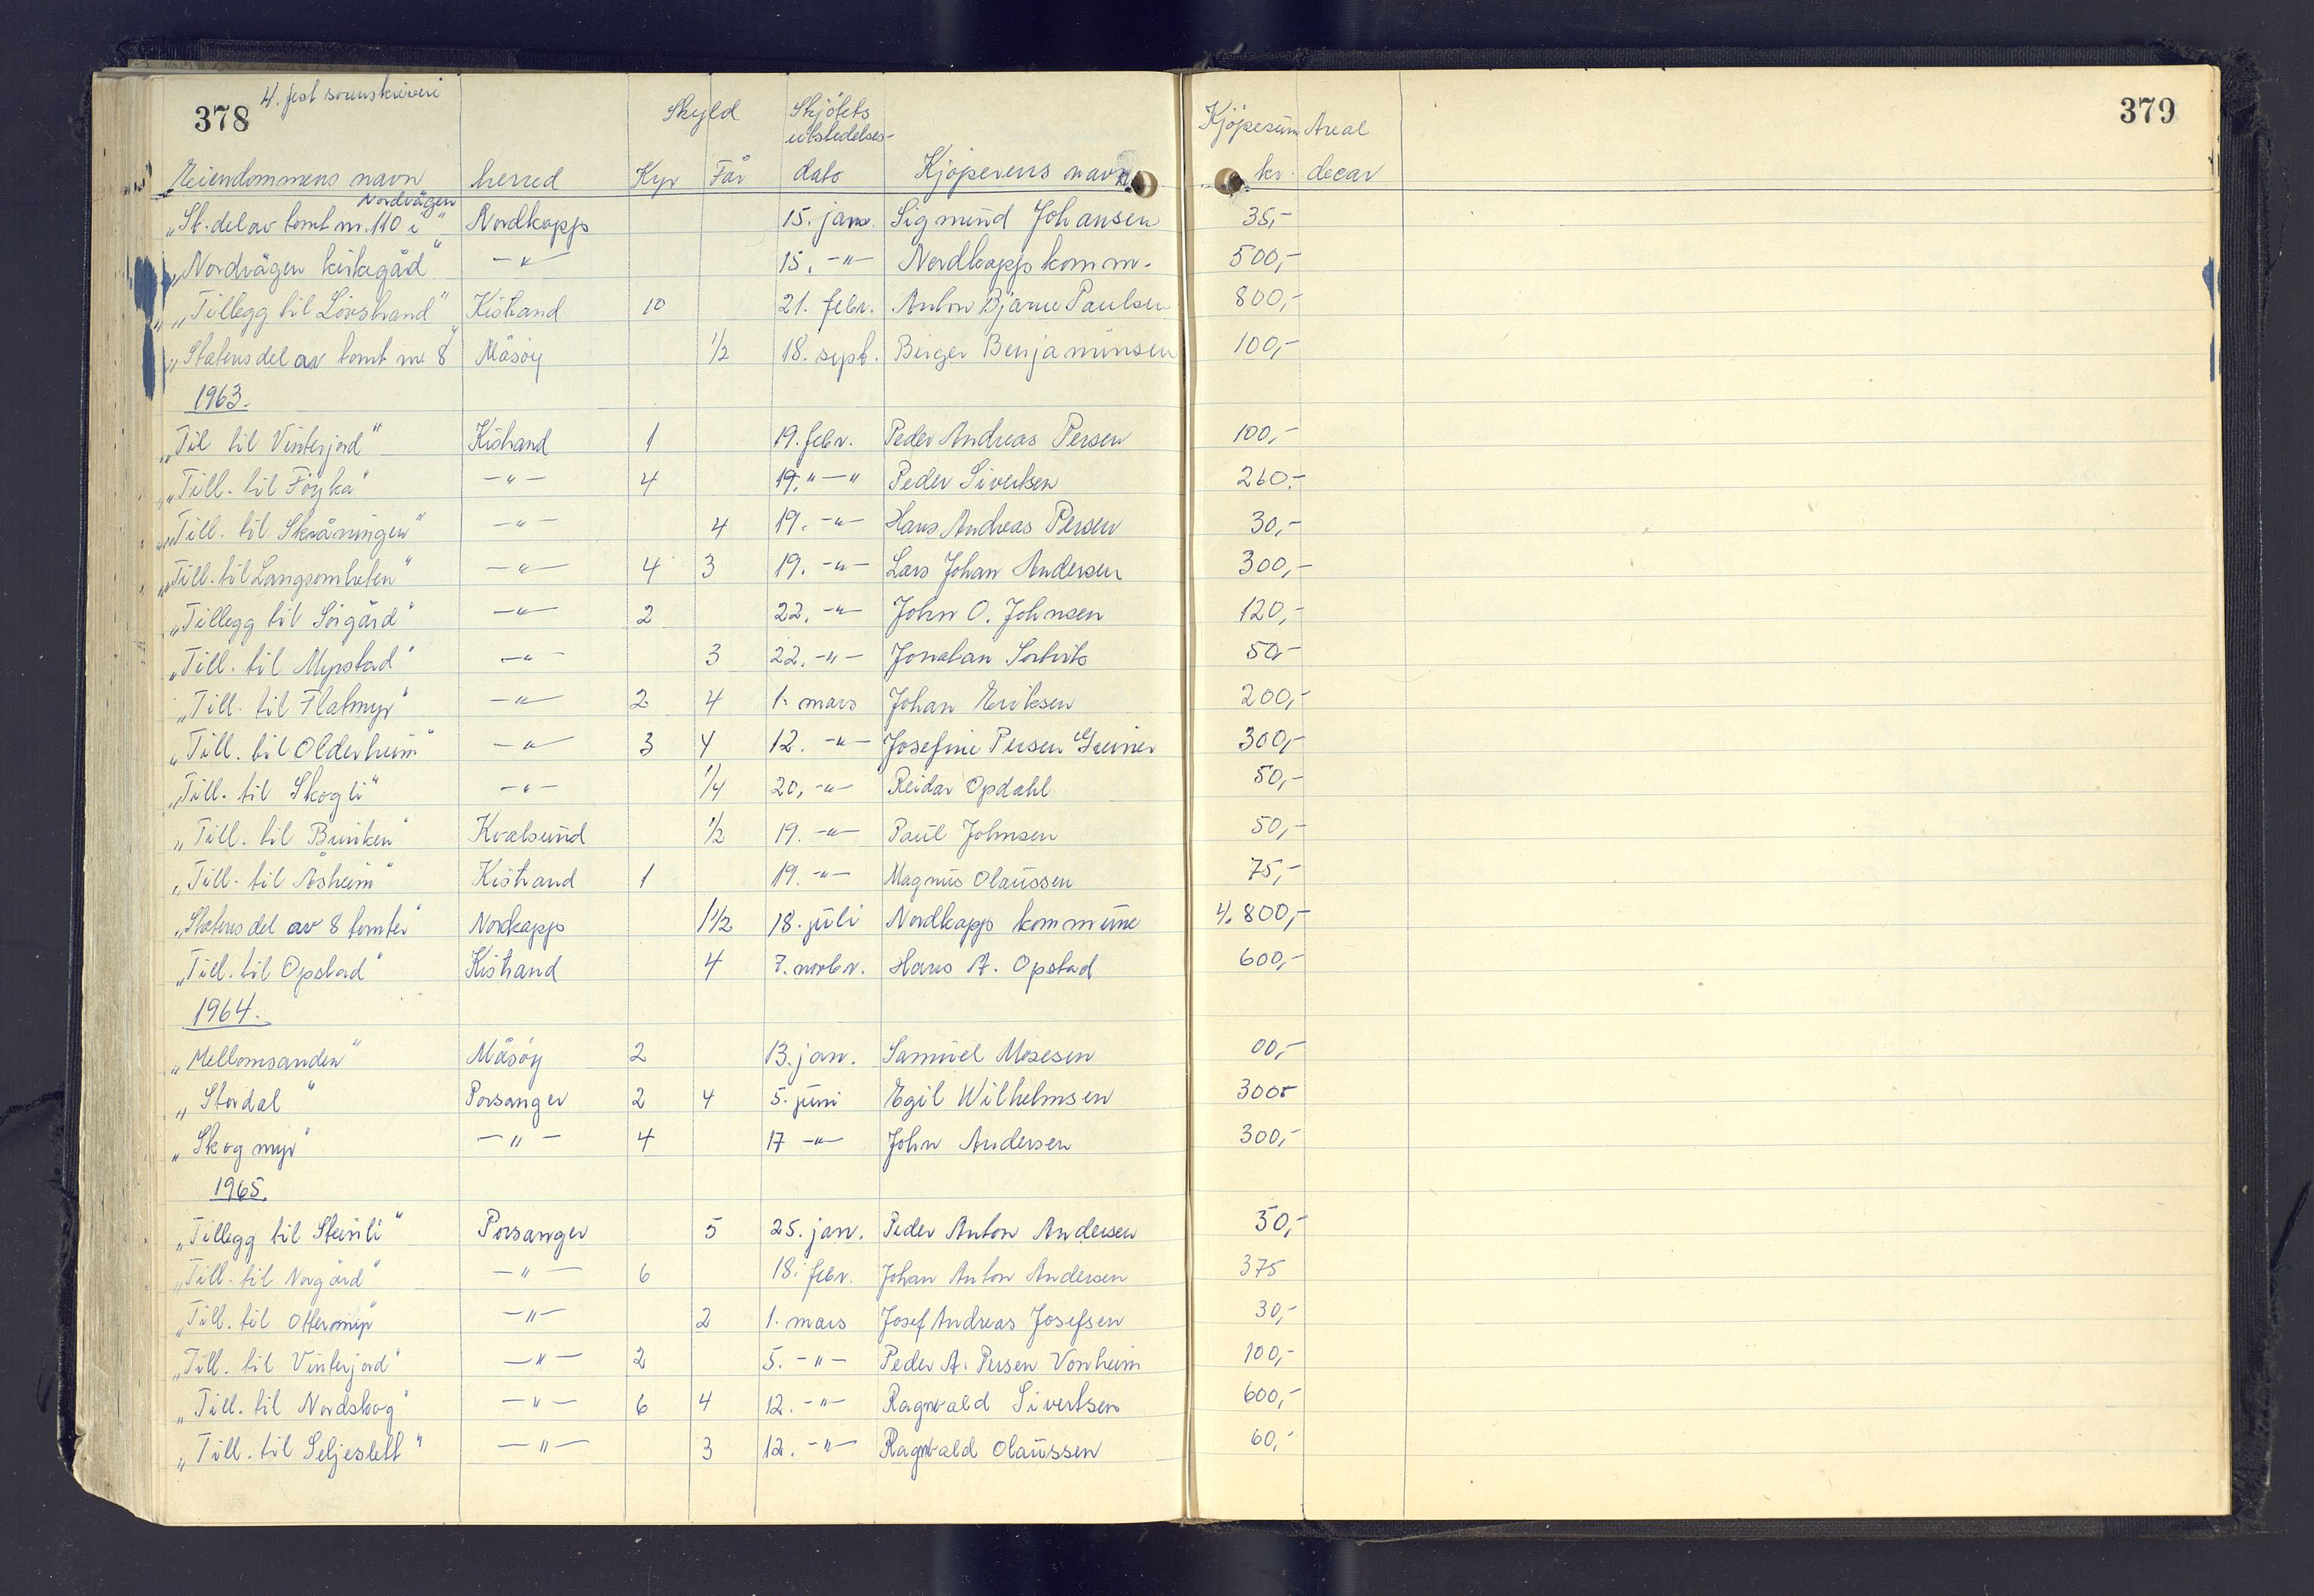 378 4. jest sorenskriveri 379
Skyld Skjötets utstedelses- Kjöpesum Areal
Eiendommens navn herred Kyr Får dato Kjöperens navn kr. decar
"St. del av tomt nr. 110 i Nordvågen" Nordkapp 15. jan. Sigmund Johansen 35,-
"Nordvågen kirkegård" -"- 15. -"- Nordkapp komm. 500,-
"Tillegg til Lövstrand" Kistrand 10 21. febr. Anton Bjarne Paulsen 800,-
"Statens del av tomt nr 8" Måsöy 1/2 18. sept. Birger Benjaminsen 100,-
1963.
"Til til Vinterjord" Kistrand 1 19. febr. Peder Andreas Persen 100,-
"Till. til Föyka" -"- 4 19. "-" Peder Sivertsen 260.-
"Till. til Skråningen" -"- 4 19. -"- Hans Andreas Persen 30,-
"Till. til Langsomheten" -"- 4 3 19. -"- Lars Johan Andersen 300,-
"Tillegg til Sörgård" -"- 2 22. -"- John O. Johnsen 120,-
"Till. til Myrstad" -"- 3 22. -"- Jonatan 50-
"Till. til Flatmyr" -"- 2 4 1. mars Johan Eriksen 200,-
"Till. til Olderheim" -"- 3 4 12. -"- Josefine Persen Greiner 300,-
"Till. til Skogli" -"- 1/4 20, -"- Reidar Opdahl 50,-
"Till. til Bunken" Kvalsund 1/2 19. -"- Paul Johnsen 50,-
"Till. til Åsheim" Kistrand 1 19. -"- Magnus Olaussen 75,-
"Statens del av 8 tomter" Nordkapp 1 1/2 18. juli Nordkapp kommune 4.800,-
"Till. til Opstad" Kistrand 4 7. novbr. Hans A. Opstad 600,-
1964.
"Mellomsanden" Måsöy 2 13. jan. Samuel Mosesen 00,-
"Stordal" Porsanger 2 4 5. juni Egil Wilhelmsen 300-
"Skogmyr" -"- 4 17 -"- John Andersen 300,-
1965.
"Tillegg til Steinli" Porsanger 5 25. jan. Peder Anton Andersen 50,-
"Till. til Norgård" -"- 6 18. febr. Johan Anton Andersen 375
"Till. til Ottermyr" -"- 2 1. mars Josef Andreas Josefsen 30,-
"Till. til Vinterjord" -"- 2 5. -"- Peder A. Persen Vonheim 100,-
"Till. til Nordskog" -"- 6 4 12. -"- Ragnvald Sivertsen 600,-
"Till. til Seljeslett" -"- 3 12. -"- Ragnvald Olaussen 60,-